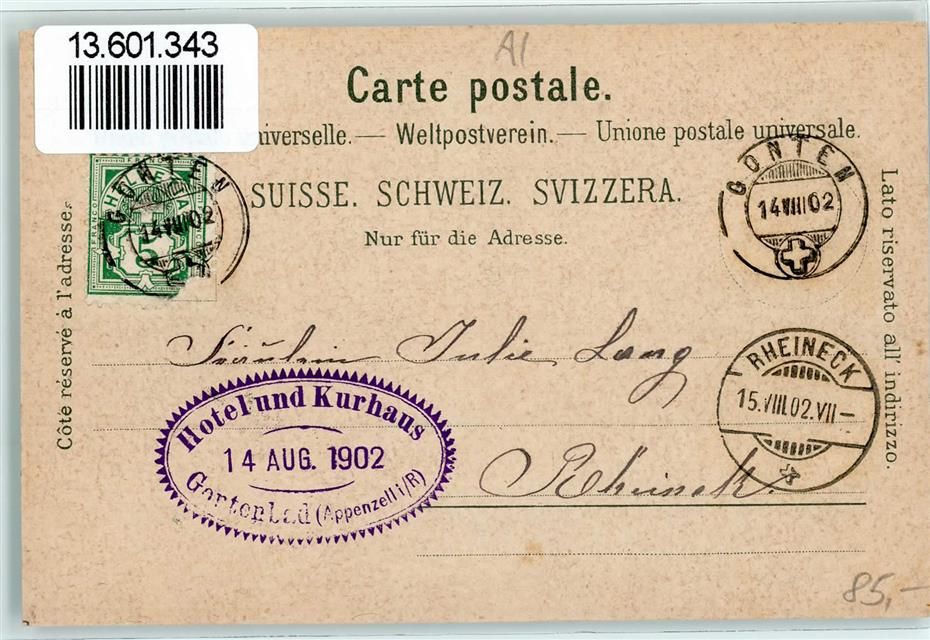 13.601.343
A1
Carte postale.
iverselle. — Weltpostverein. — Unione postale universale.
SUISSE. SCHWEIZ. SVIZZERA.
Nur für die Adresse.
Côté réservé à l'adresse.
Lato riservato all' indirizzo.
FRANCO
HELVETIA
5
GONTEN
14 VIII 02
GONTEN
14 VIII 02
Fräulein Julie Lang
Rheineck.
RHEINECK
15.VIII.02.VII-
Hotel und Kurhaus
14 AUG. 1902
Gontenbad (Appenzell i/R)
85,-